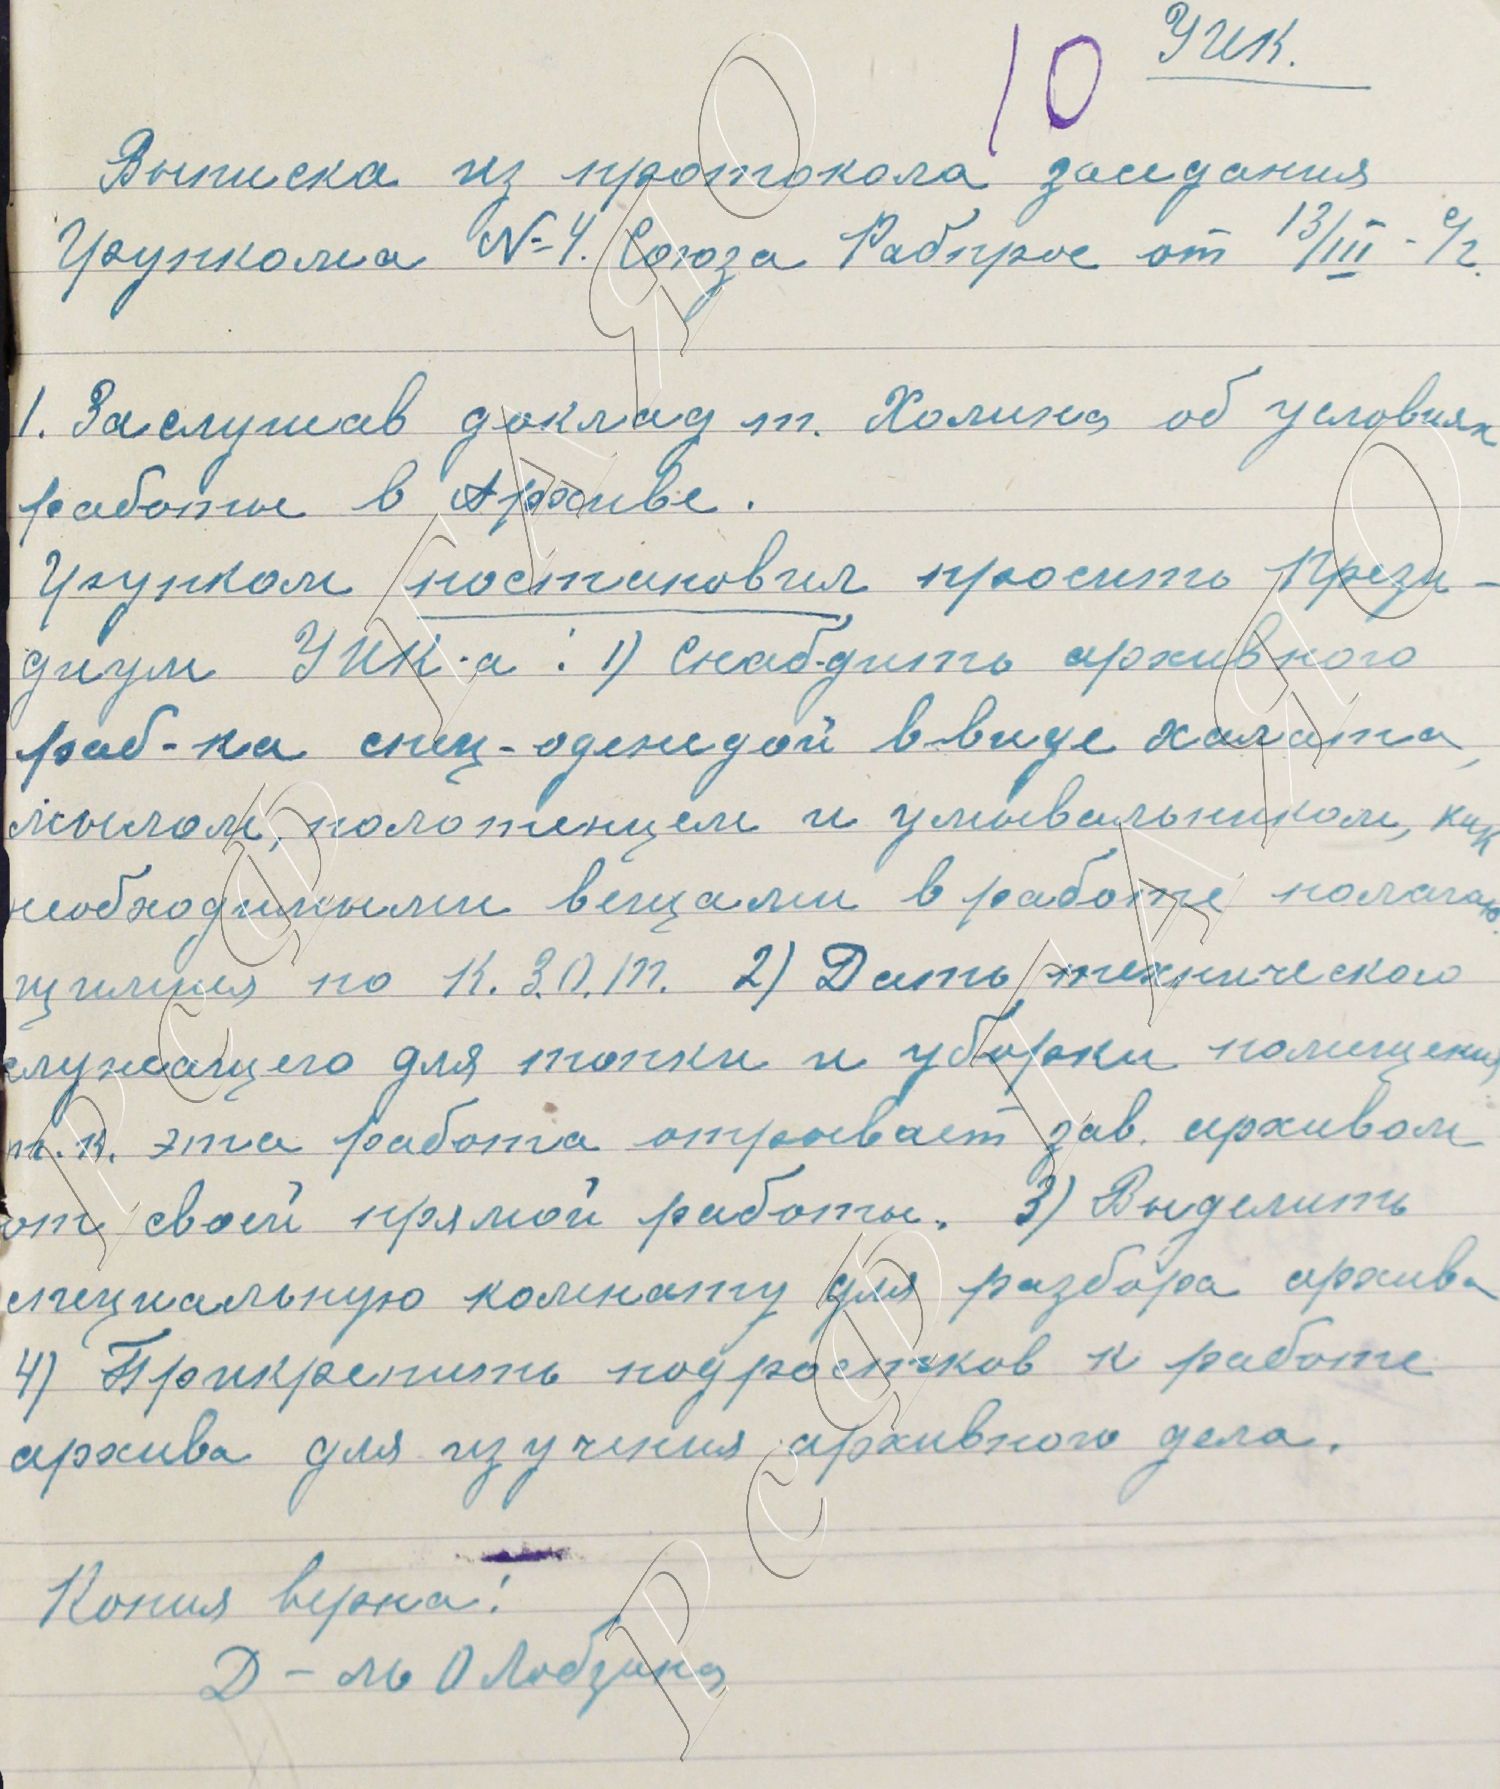 10 УИК.
Выписка из протокола заседания
Групкома №4. Союза Рабпрос от 13/III - с/г.
1. Заслушав доклад т. Холина об условиях
работы в Архиве.
Групком постановил просить Прези-
диум УИК-а: 1) Снабдить архивного
раб-ка спец-одеждой в виде халата,
мылом, полотенцем и умывальником, как
необходимыми вещами в работе полагаю-
щимися по К.З.О.Т. 2) Дать технического
служащего для топки и уборки помещения
т.к. эта работа отрывает зав. архивом
от своей прямой работы. 3) Выделить
специальную комнату для разбора архива
4) Прикрепить подростков к работе
архива для изучения архивного дела.
Копия верна:
Д-ль О Лобзина
РсФ ГАЯО
РсФ ГАЯО